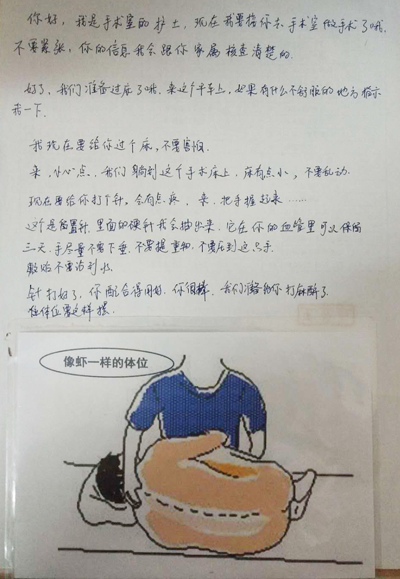 你好，我是手术室的护士，现在我要接你去手术室做手术了哦，
不要紧张，你的信息我会跟你家属核查清楚的.
好了，我们准备过床了哦.来这个平车上，如果有什么不舒服的地方告示
我一下.
我现在要给你过个床，不要害怕.
来，小心点，我们躺到这个手术床上，床有点小，不要乱动.
现在要给你打个针.会有点疼，来，把手握起来……
这个是留置针.里面的硬针我会抽出来，它在你的血管里可以保留
三天.手尽量不要下垂.不要提重物，不要压到这只手.
敷贴不要沾到水.
针打好了，你配合得因好，你很棒，我们准备给你打麻醉了.
你体位要这样摆.
像虾一样的体位